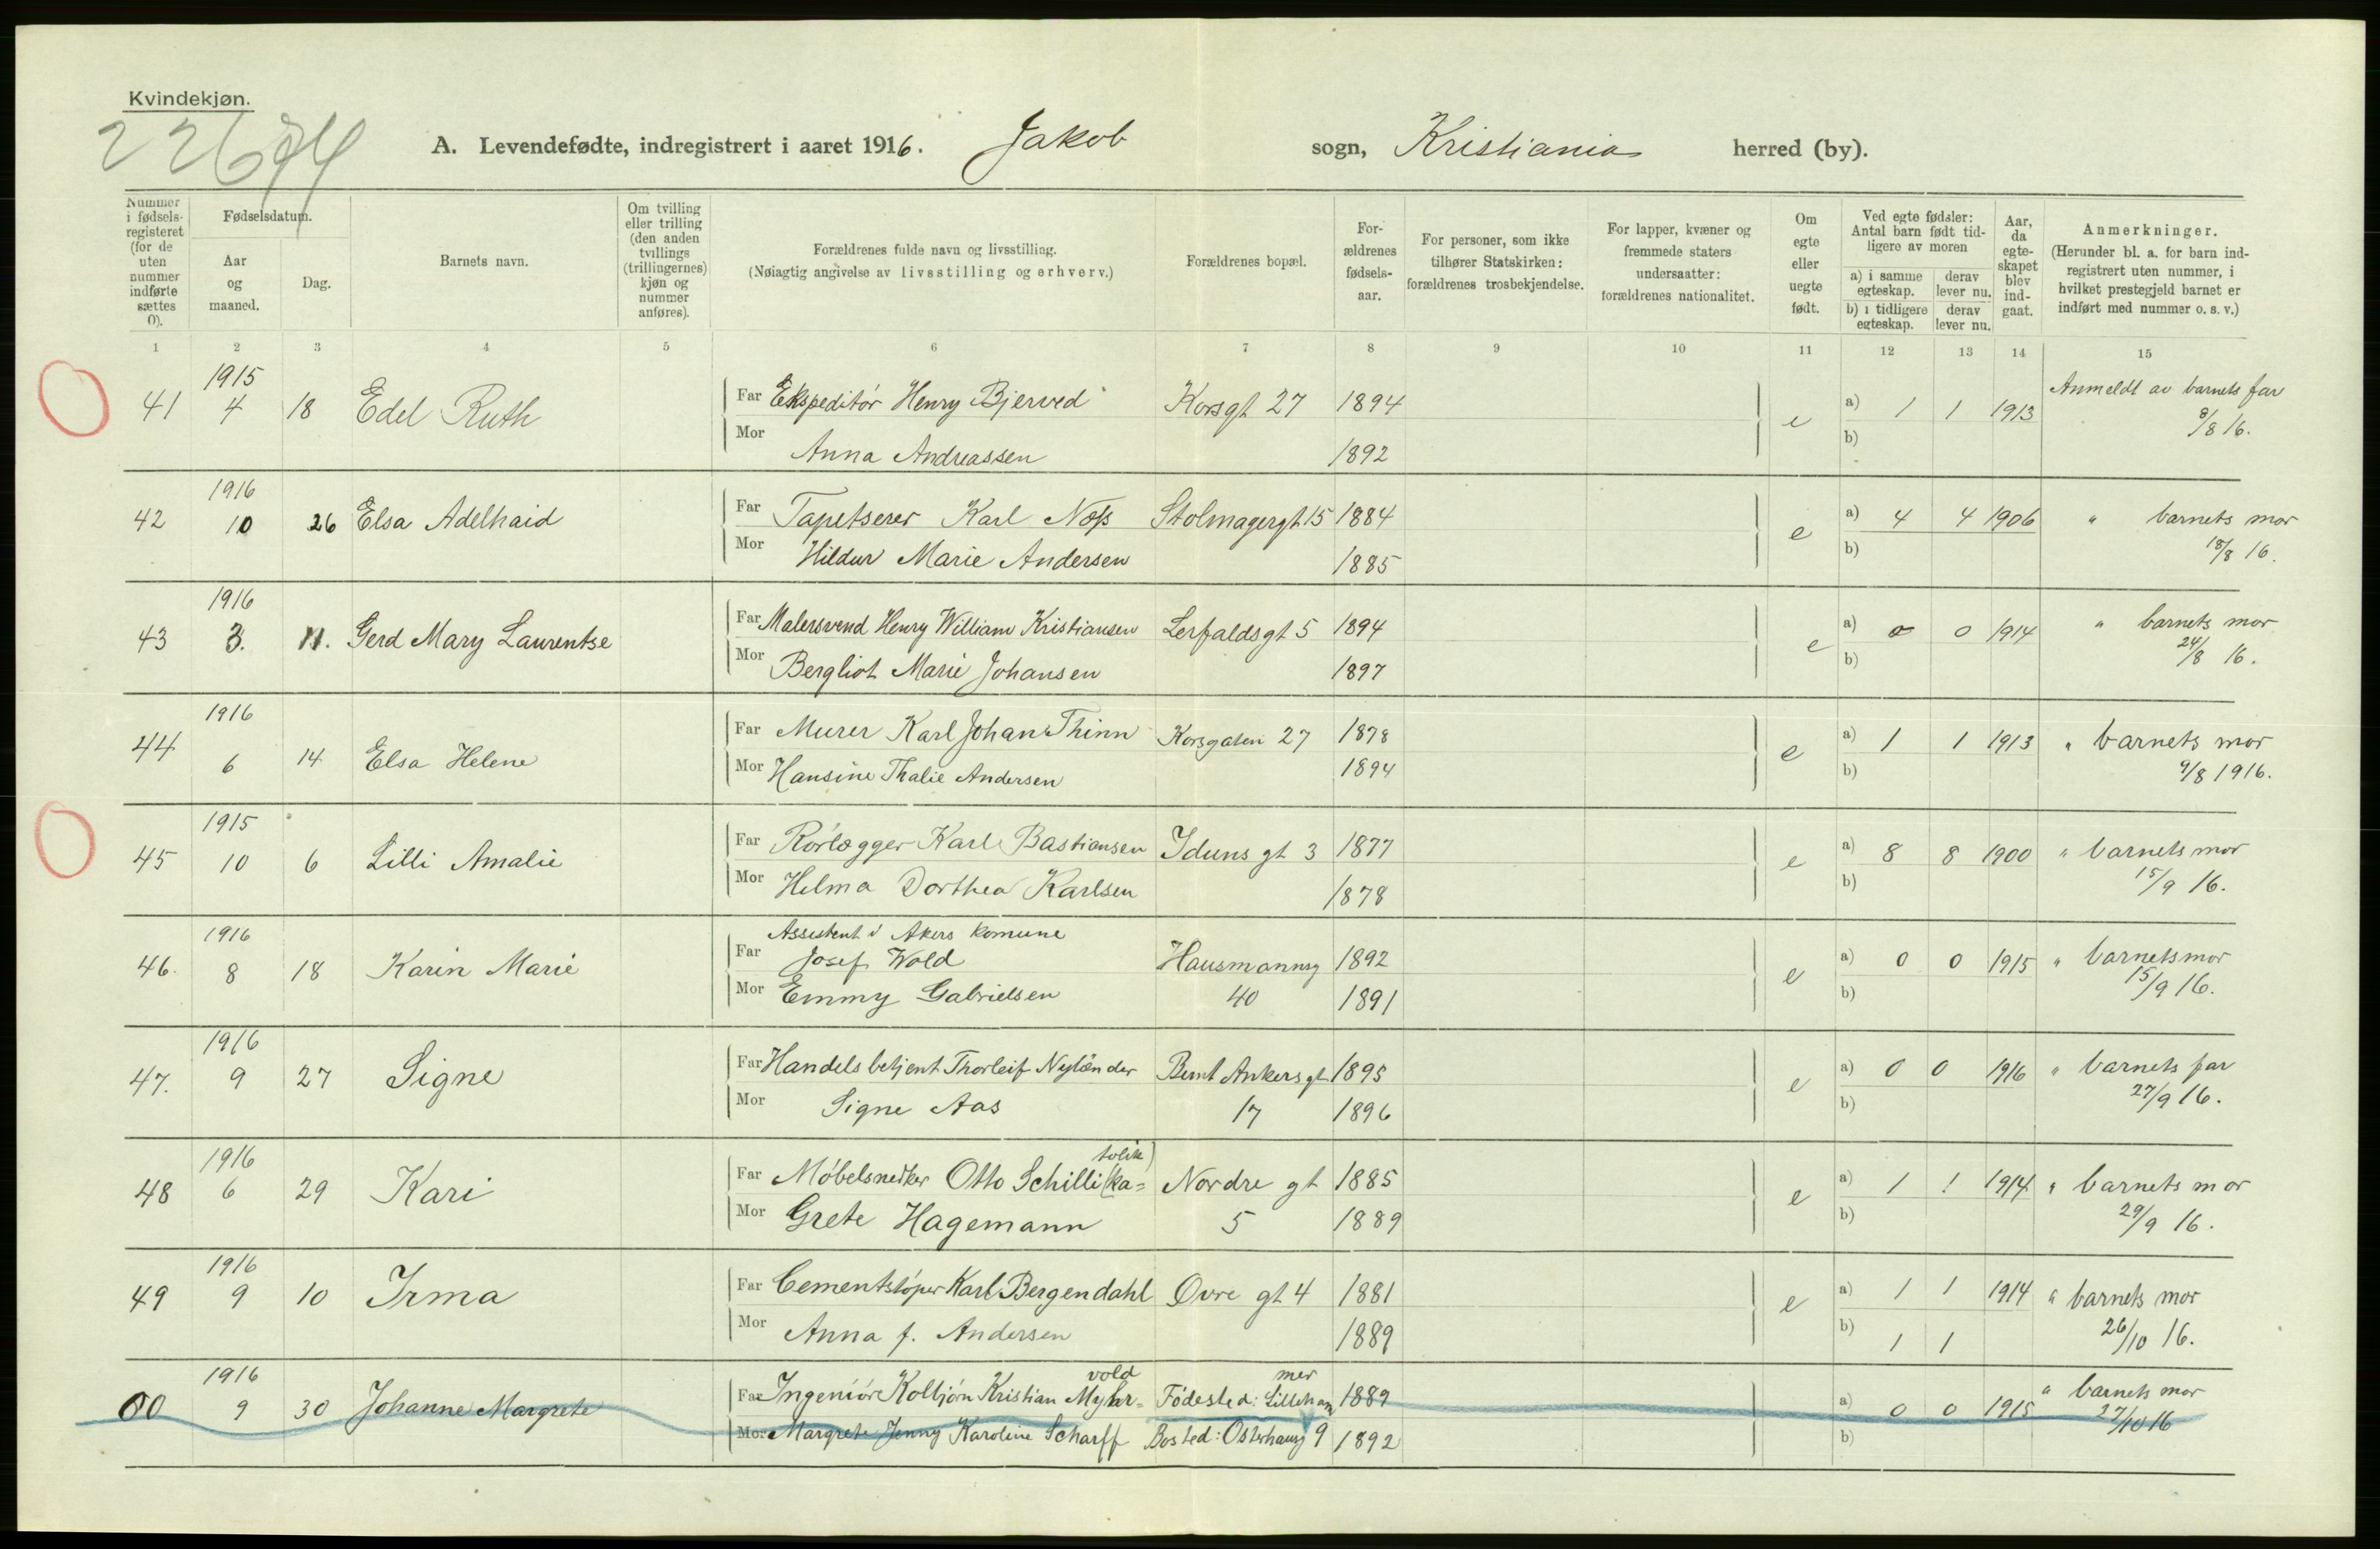 Kvindekjøn.
A. Levendefødte, indregistrert i aaret 1916. Jakob sogn, Kristiania herred (by).
Nummer i fødselsregisteret (for de uten nummer indførte sættes 0).
Fødselsdatum.
Aar og maaned.
Dag.
Barnets navn.
Om tvilling eller trilling (den anden tvillings (trillingernes) kjøn og nummer anføres).
Forældrenes fulde navn og livsstilling.
(Nøiagtig angivelse av livsstilling og erhverv.)
Forældrenes bopæl.
Forældrenes fødselsaar.
For personer, som ikke tilhører Statskirken: forældrenes trosbekjendelse.
For lapper, kvæner og fremmede staters undersaatter: forældrenes nationalitet.
Om egte eller uegte født.
Ved egte fødsler: Antal barn født tidligere av moren
a) i samme egteskap. derav lever nu.
b) i tidligere egteskap. derav lever nu.
Aar, da egteskapet blev indgaat.
Anmerkninger.
(Herunder bl. a. for barn indregistrert uten nummer, i hvilket prestegjeld barnet er indført med nummer o. s. v.)
1 2 3 4 5 6 7 8 9 10 11 12 13 14 15
1915
41 4 18 Edel Ruth Far Ekspeditör Henry Bjerved Korsgt 27 1894 e a) 1 1 1913 Anmeldt av barnets far
Mor Anna Andreassen 1892 b) 9/8 16.
1916
42 10 26 Elsa Adelhaid Far Tapetserer Karl Næss Stolmagergt 15 1884 e a) 4 4 1906 " barnets mor
Mor Hildur Marie Andersen 1885 b) 18/8 16.
1916
43 3. 11. Gerd Mary Laurentse Far Malersvend Henry William Kristiansen Lerfaldsgt 5 1894 e a) 0 0 1914 " barnets mor
Mor Bergliot Marie Johansen 1897 b) 24/8 16.
1916
44 6 14 Elsa Helene Far Murer Karl Johan Thinn Korsgaten 27 1878 e a) 1 1 1913 " barnets mor
Mor Hansine Thalie Andersen 1894 b) 9/8 1916.
1915
45 10 6 Lilli Amalie Far Rörlægger Karl Bastiansen Iduns gt 3 1877 e a) 8 8 1900 " barnets mor
Mor Helma Dorthea Karlsen 1878 b) 15/9 16.
1916 Assistent i Akers komune
46. 8 18 Karin Marie Far Josef Wold Hausmannsg 1892 e a) 0 0 1915 " barnets mor
Mor Emmy Gabrielsen 40 1891 b) 15/9 16.
1916
47. 9 27 Signe Far Handelsbetjent Thorleif Nylænder Bernt Ankersgt 1895 e a) 0 0 1916 " barnets far
Mor Signe Aas 17 1896 b) 27/9 16.
1916 tolik)
48 6 29 Kari Far Møbelsnedker Otto Schilli (ka= Nordre gt 1885 e a) 1 1 1914 " barnets mor
Mor Grete Hagemann 5 1889 b) 29/9 16.
1916
49 9 10 Irma Far Cementstöper Karl Bergendahl Øvre gt 4 1881 e a) 1 1 1914 " barnets mor
Mor Anna f. Andersen 1889 b) 1 1 26/10 16.
1916 vold mer
9 30 Johanne Margrete Far Ingeniör Kolbjörn Kristian Myhr= Födested: Lilleham 1889 a) 0 0 1915 " barnets mor
Mor Margrete Jenny Karoline Scharff Bosted: Osterhausg 9 1892 b) 27/10 16